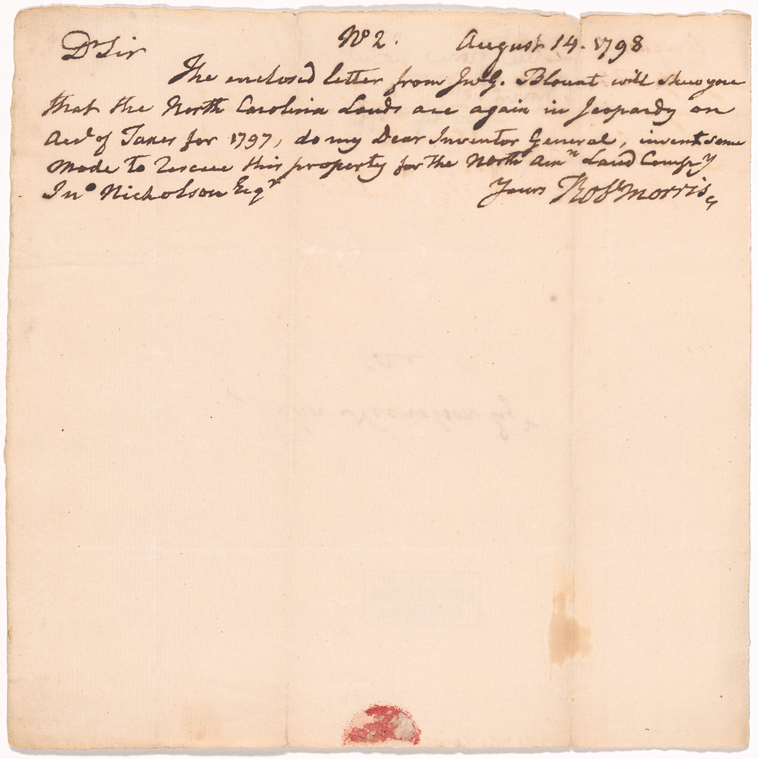 Dr Sir No 2. August 14. 1798
The enclosed letter from Jno G. Blount will shew you
that the North Carolina Lands are again in Jeopardy on
Acct of Taxes for 1797, do my Dear Inventor General, invent some
mode to rescue this property for the North Amn Land Compy
Jno Nicholson Esqr Yours Robt Morris